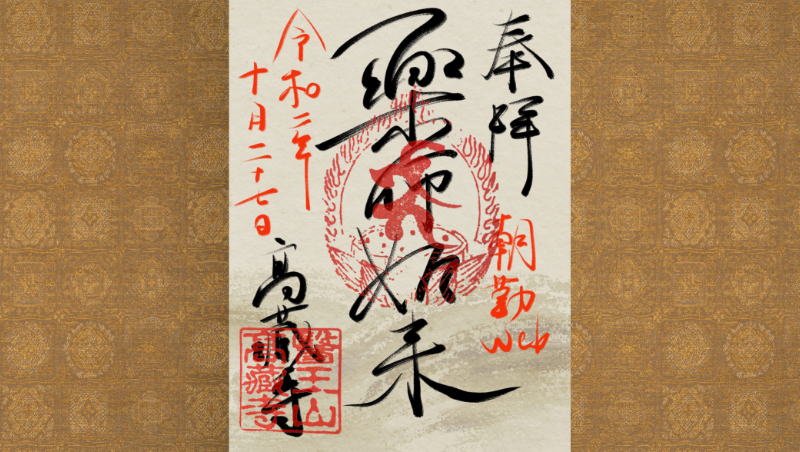 奉拝
朝勤
Web
薬師如来
令和二年
十月二十七日
高蔵寺
醫王山
高藏寺